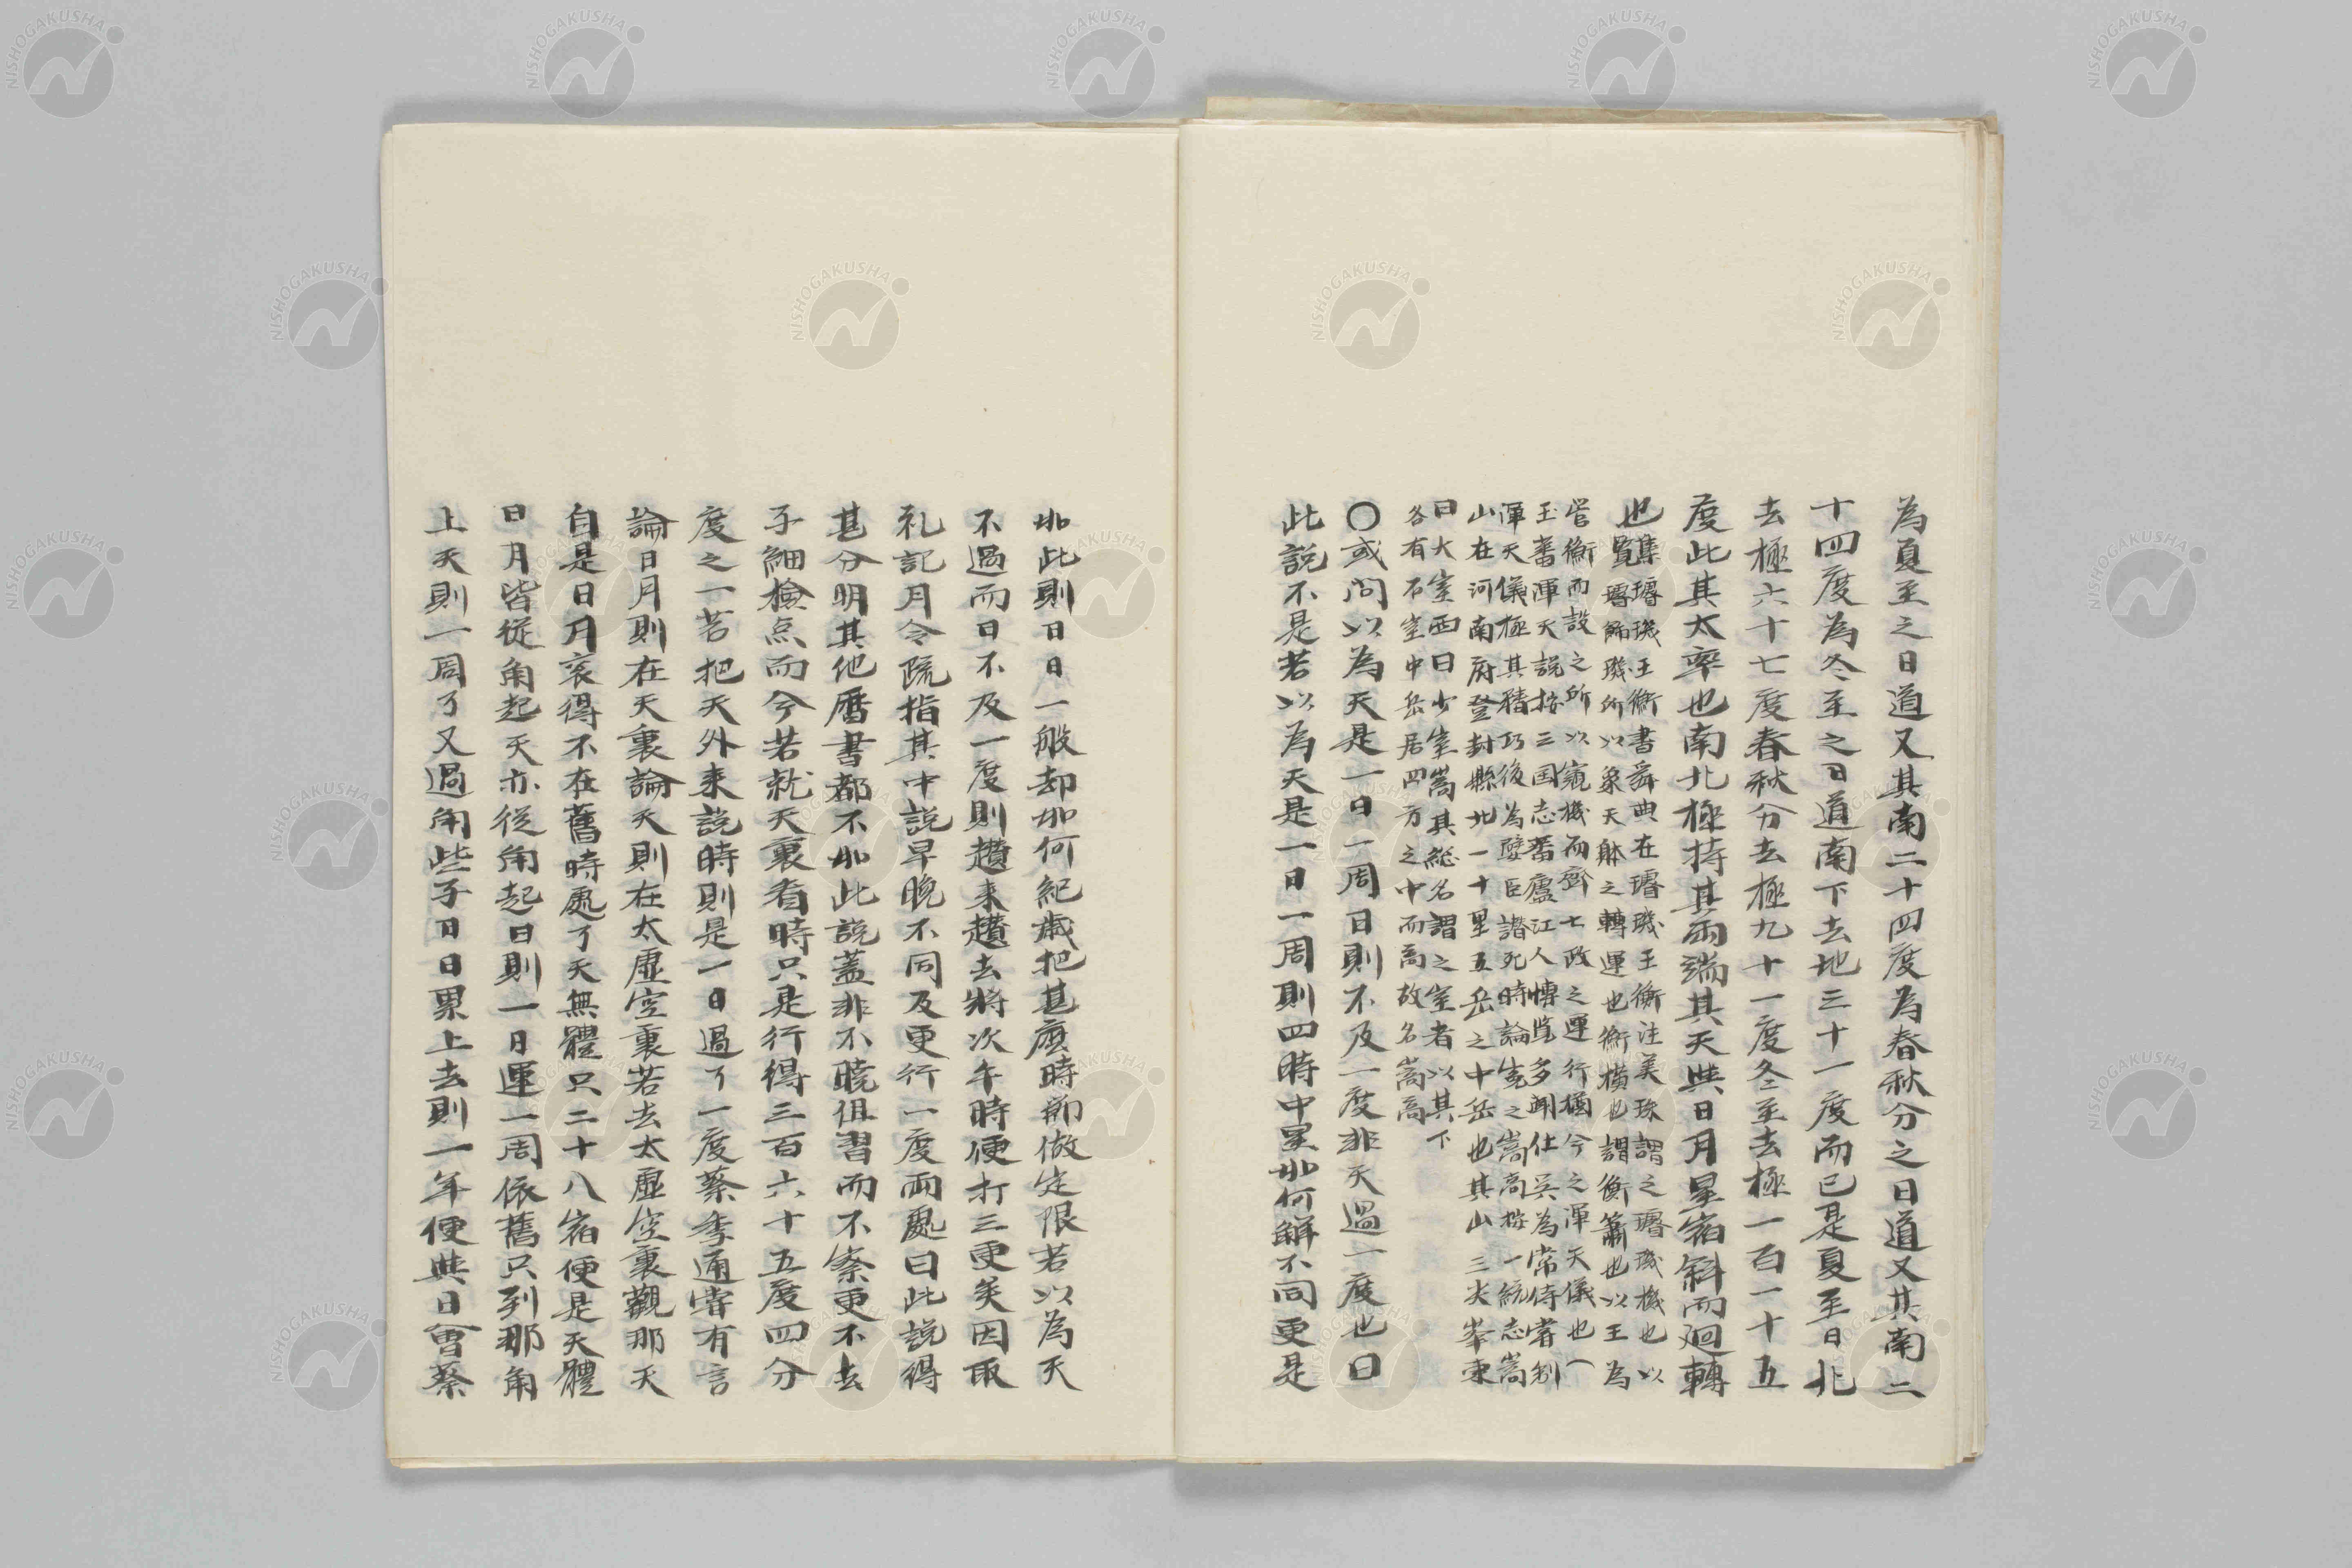 為夏至之日道又其南二十四度為春秋分之日道又其南二
十四度為冬至之日道南下去地三十一度而已是夏至日北
去極六十七度春秋分去極九十一度冬至去極一百一十五
度此其大率也南北極持其兩端其天與日月星宿斜而廻轉
也
集璿璣玉衡書舜典在璿璣玉衡注美珠謂之璿璣機也以
覽璿飾璣所以象天躰之轉運也衡橫也謂衡簫也以玉為
管衡而設之所以窺機而齊七政之運行猶今之渾天儀也
玉蕃渾天説按三国志蕃廬江人博覧多聞仕吴為常侍嘗制
渾天儀極其精巧後為嬖臣譖死時論寃之嵩高按一統志嵩
山在河南府登封縣北一十里五岳之中岳也其山三尖峯東
曰大室西曰少室嵩其総名謂之室者以其下
各有石室中岳居四方之中而高故名嵩高
〇或問以為天是一日一周日則不及一度非天過一度也曰
此説不是若以為天是一日一周則四時中星如何解不同更是
如此則日日一般却如何紀歳把甚麼時節做定限若以為天
不過而日不及一度則趲来趲去將次午時便打三更矣因取
礼記月令疏指其中説早晩不同及更行一度兩處曰此説得
甚分明其他曆書都不如此説蓋非不曉但習而不察更不去
子細檢点而今若就天裏看時只是行得三百六十五度四分
度之一若把天外来説時則是一日過了一度蔡季通嘗有言
論日月則在天裏論天則在太虚空裏若去太虚空裏觀那天
自是日月衮得不在舊時處了天無體只二十八宿便是天體
日月皆從角起天亦從角起日則一日運一周依舊只到那角
上天則一周了又過角些子日日累上去則一年便與日會蔡